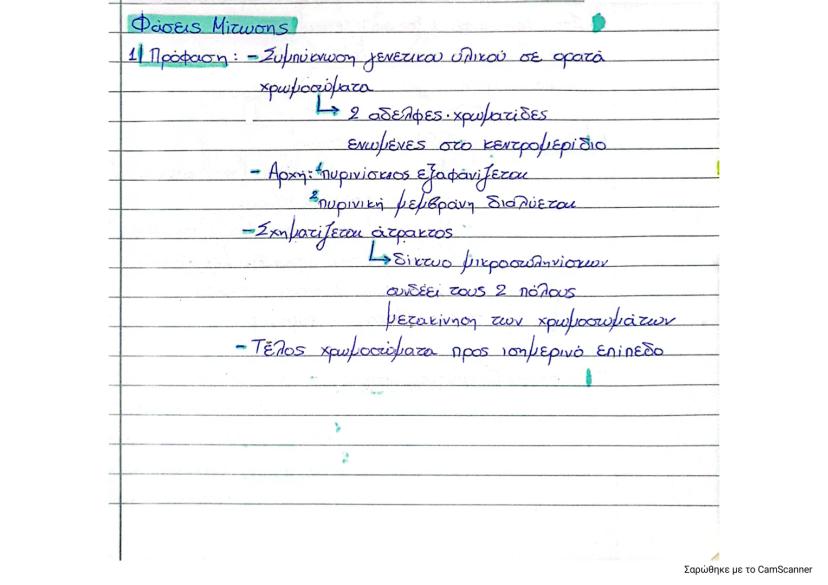 Φάσεις Μίτωσης
1) Πρόφαση: - Συμπύκνωση γενετικού υλικού σε ορατά
χρωμοσώματα
↳ 2 αδελφές χρωματίδες
ενωμένες στο κεντρομερίδιο
- Αρχή: 1 πυρινίσκος εξαφανίζεται
2 πυρινική μεμβράνη διαλύεται
- Σχηματίζεται άτρακτος
↳ δίκτυο μικροσωληνίσκων
συνδέει τους 2 πόλους
μετακίνηση των χρωμοσωμάτων
- Τέλος χρωμοσώματα προς ισημερινό επίπεδο
Σαρώθηκε με το CamScanner